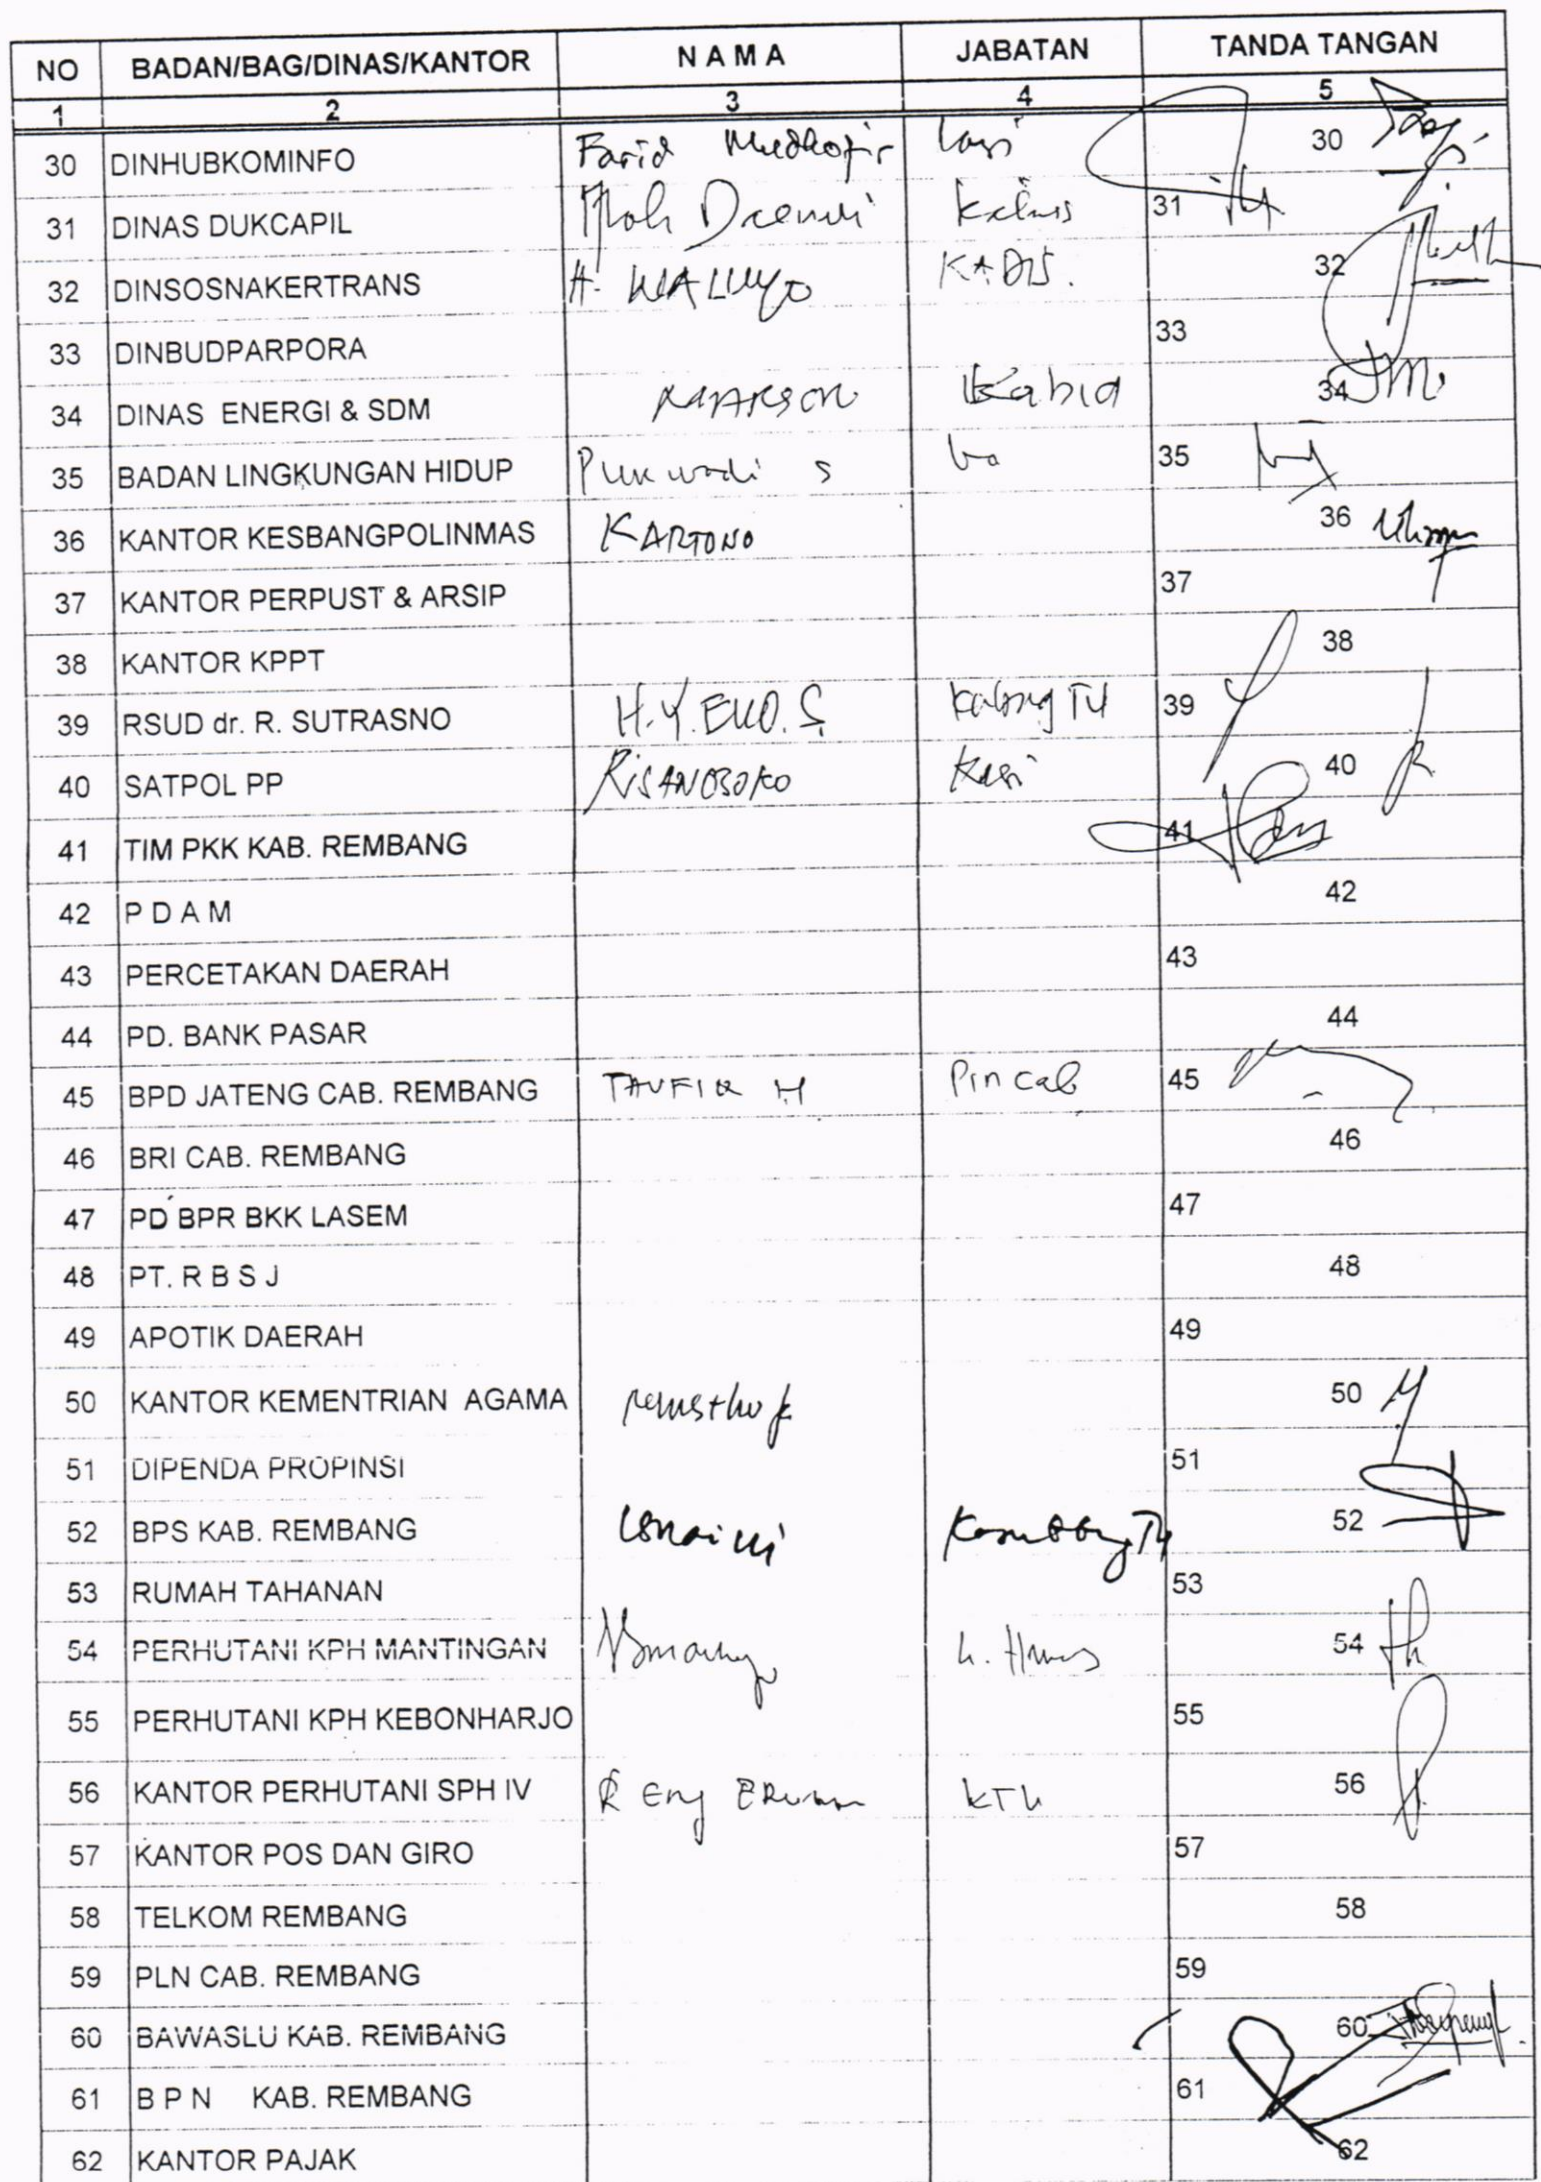 NO BADAN/BAG/DINAS/KANTOR N A M A JABATAN TANDA TANGAN
1 2 3 4 5
30 DINHUBKOMINFO Farid Mudhofir kasi 30
31 DINAS DUKCAPIL Moh Daenuri 31
32 DINSOSNAKERTRANS H. WALUYO KADIS. 32
33 DINBUDPARPORA 33
34 DINAS ENERGI & SDM Kabid 34
35 BADAN LINGKUNGAN HIDUP Purwadi S 35
36 KANTOR KESBANGPOLINMAS KARTONO 36
37 KANTOR PERPUST & ARSIP 37
38 KANTOR KPPT 38
39 RSUD dr. R. SUTRASNO H.Y. EKO. S Kabag TU 39
40 SATPOL PP Kasi 40
41 TIM PKK KAB. REMBANG 41
42 P D A M 42
43 PERCETAKAN DAERAH 43
44 PD. BANK PASAR 44
45 BPD JATENG CAB. REMBANG TAUFIK H Pincab 45
46 BRI CAB. REMBANG 46
47 PD BPR BKK LASEM 47
48 PT. R B S J 48
49 APOTIK DAERAH 49
50 KANTOR KEMENTRIAN AGAMA 50
51 DIPENDA PROPINSI 51
52 BPS KAB. REMBANG Kasubbag TU 52
53 RUMAH TAHANAN 53
54 PERHUTANI KPH MANTINGAN 54
55 PERHUTANI KPH KEBONHARJO 55
56 KANTOR PERHUTANI SPH IV KTU 56
57 KANTOR POS DAN GIRO 57
58 TELKOM REMBANG 58
59 PLN CAB. REMBANG 59
60 BAWASLU KAB. REMBANG 60
61 B P N KAB. REMBANG 61
62 KANTOR PAJAK 62